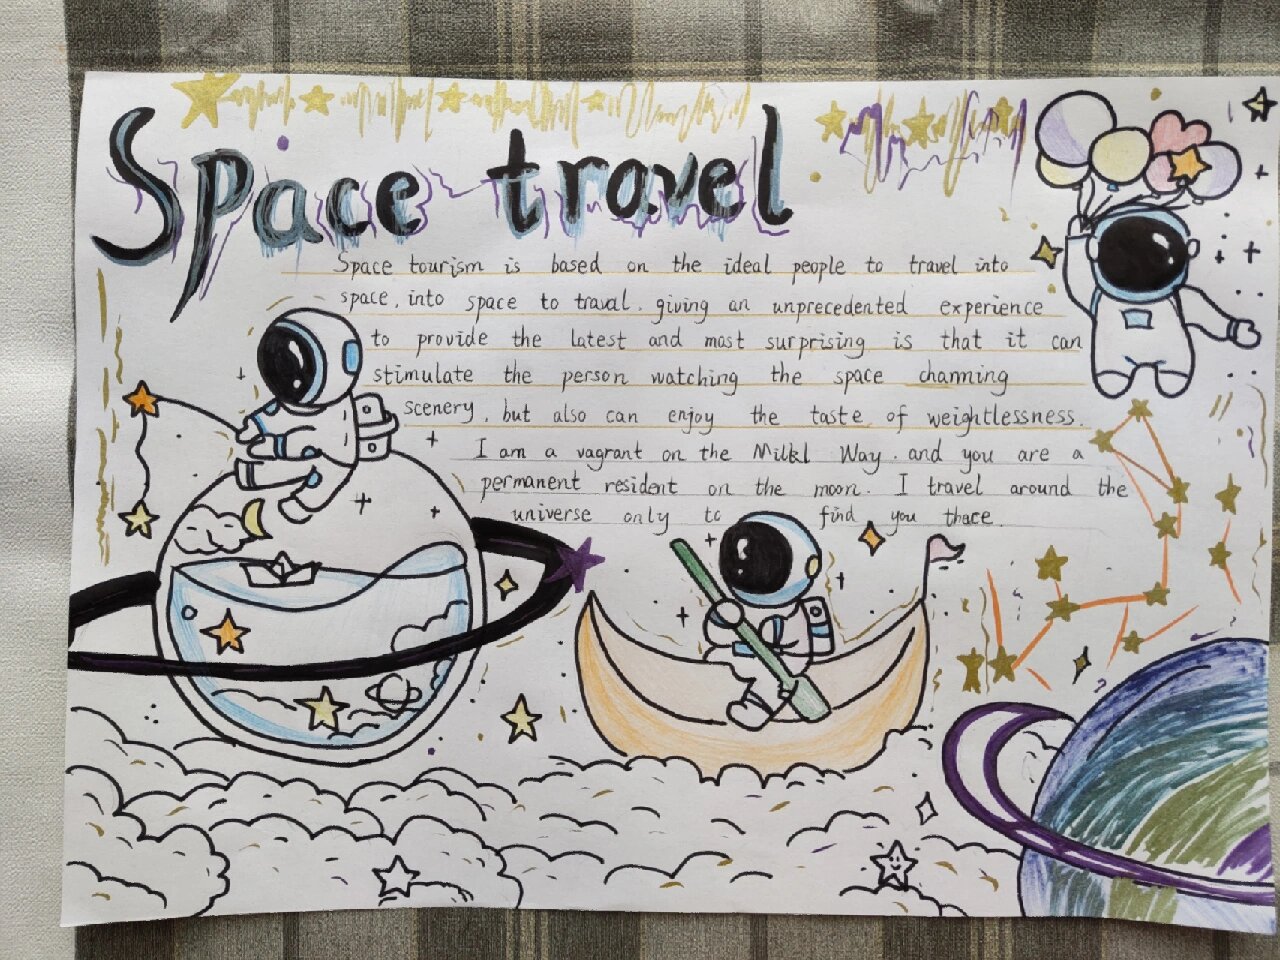 Space travel
Space tourism is based on the ideal people to travel into
space, into space to traval, giving an unprecedented experience
to provide the latest and most surprising is that it can
stimulate the person watching the space channing
scenery, but also can enjoy the taste of weightlessness.
I am a vagrant on the Milkl Way, and you are a
permanent resident on the moon. I travel around the
universe only to find you thace.